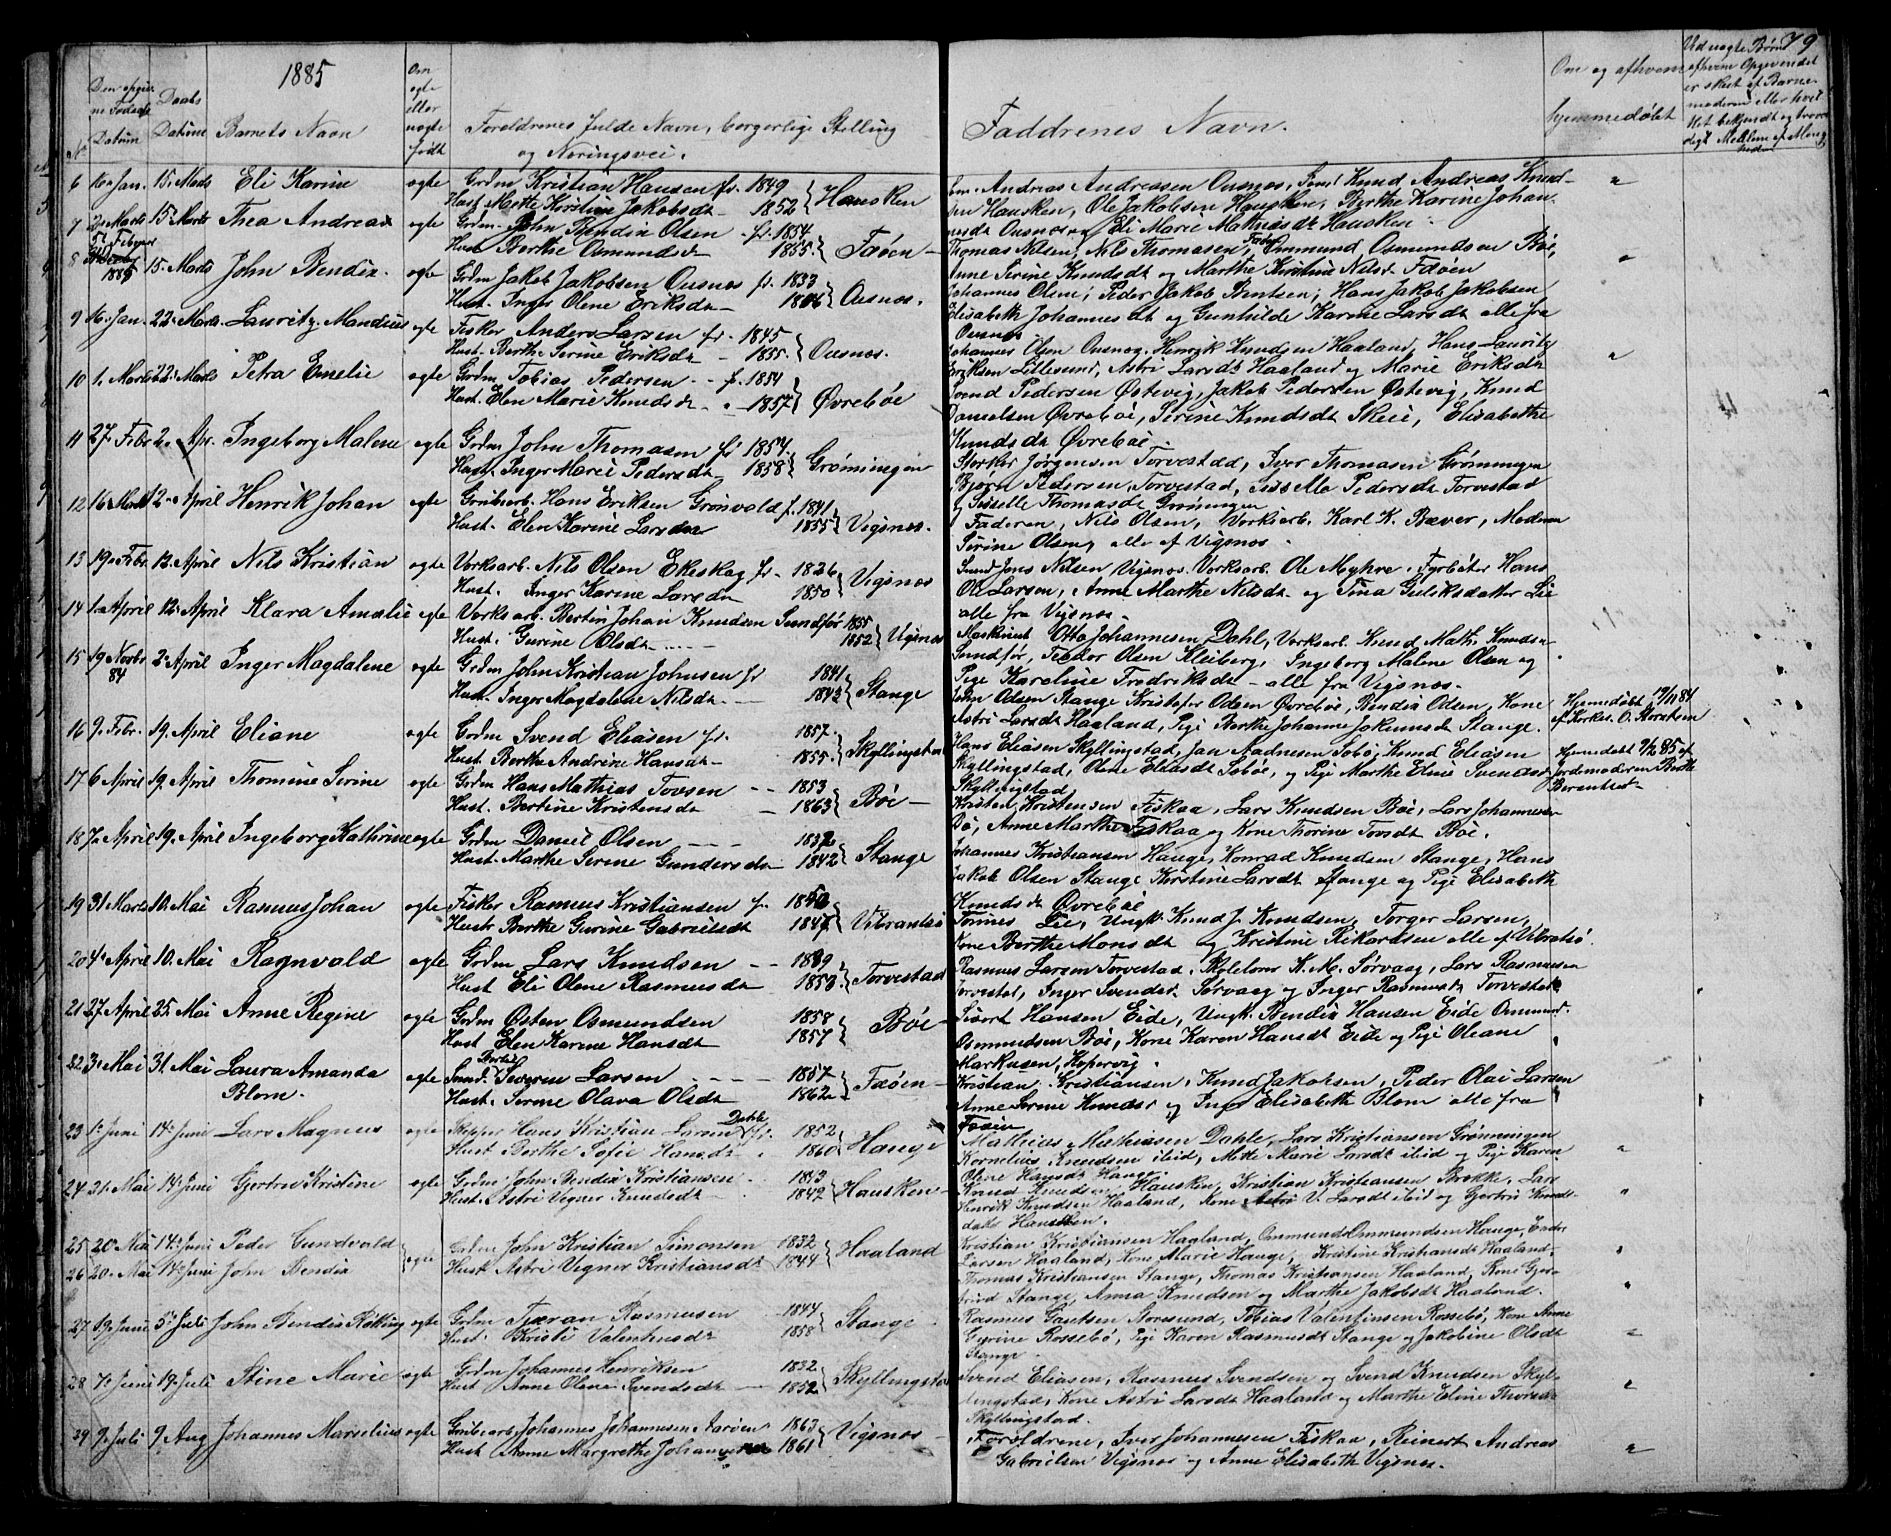 79
1885
Den opgiv-
ne Fødsels
Datum
Daabs
Datum
Barnets Navn
Om
ægte
eller
uægte
født
Forældrenes fulde Navn, borgerlige Stilling
og Næringsvei.
Faddrenes Navn.
Om og af hvem
hjemmedøbt
Ved uægte Børn
af hvem Opgivendet
er skeet af Barne-
moderen eller hvil
6 16 Jan. 15. Marts Eli Karine ægte Grdm Kristian Hansen fr. 1849
Hust. Mette Kirstine Jakobsdt 1852 Hausken
Em. Andreas Andreassen Ousnæs, Knud Andreas Knud-
sen Hausken, Ole Jakobsen Hausken, Berthe Karine Johan-
nesdt Ousnæs og Eli Marie Mathiasdt Hausken
7 2 Marts 15 Marts Thea Andrea ægte Grdm. John Bendix Olsen fr. 1854
Hust Berthe Osmundsdt 1855 Fæøen
Thomas Nilsen, Nils Thomasen, Fæøen, Ommund Osmundsen Bøe,
Anne Serine Knudsdt og Marthe Kirstine Nilsdt Fæøen
8 1885 15. Marts John Bendix ægte Grdm Jakob Jakobsen Ousnæs fr. 1833
Hust. Inger Olene Eriksdt 1846 Ousnæs.
Johannes Olsen, Peder Jakob Bentsen, Hans Jakob Jakobsen
Elisabeth Johannesdt og Gunhilde Karine Larsdt alle fra
Ousnæs
9 16. Jan. 22 Marts Lauritz Mandius ægte Fisker Anders Larsen fr. 1845
Hust. Berthe Serine Eriksdt 1855. Ousnæs.
Johannes Olsen Ousnæs, Henrik Knudsen Haaland, Hans Lauritz
Eriksen Lillesund, Astri Larsdt Haaland og Marie Eriksdt
10 1. Marts 22 Marts Petra Emelie ægte Grdm Tobias Pedersen fr. 1854
Hust. Elen Marie Knudsdt 1857 Øvrebøe
Svend Pedersen Østevig, Jakob Pedersen Østevig, Knud
Danielsen Øvrebøe, Serine Knudsdt Skeie, Elisabethe
Knudsdt Øvrebøe
11 27 Febr 2. Apr. Ingeborg Malene ægte Grdm John Thomasen fr 1854
Hust. Inger Marie Pedersdt 1858 Grøningen
Storker Jørgensen Torvestad, Iver Thomasen Grøningen
Bjørn Pedersen, Torvestad, Sisselle Pedersdt Torvestad
og Sisselle Thomasdt Grøningen
12 16 Marts 2. April Henrik Johan ægte Grubearb. Hans Eriksen Grønvold f. 1841
Hust. Elen Karine Larsdt 1855 Vigsnæs.
Faderen, Nils Olsen, Værksarb. Karl K. Bæver, Moderen
Serine Olsen, alle af Vigsnæs
13 19. Febr. 12. April Nils Kristian ægte Værksarb. Nils Olsen Ekeskog fr. 1826
Hust. Inger Karine Larsdt 1850 Vigsnæs
Smed Jens Nilsen Vigsnæs. Værksarb. Ole Myhre, Fyrbøter Hans
Ol. Larsen, Anne Marthe Nilsdt og Tina Guliksdatter Lie
alle fra Vigsnæs
14 1. April 12. April Klara Amalie ægte Værksarb. Bertin Johan Knudsen Sundfør 1855
Hust. Gurine Olsdt 1852 Vigsnæs
Maskinist Otto Johannesen Dahl, Værksarb. Knud Math. Knudsen
Sundfør, Teodor Olsen Kleiberg, Ingeborg Malene Olsen og
Pige Karoline Fredriksdt alle fra Vigsnæs
15 19 Novbr 84 2. April Inger Magdalene ægte Grdm John Kristian Johnsen fr 1841
Hust. Inger Magdalene Nilsdt 1843 Stange
John Odsen Stange Kristofer Odsen Øvrebøe, Bendix Odsen, Kone
Astri Larsdt Haaland, Pige Berthe Johanne Johannesdt Stange.
Hjemmedøbt 19/11 84
16 9. Febr. 19. April Eliane ægte Grdm Svend Eliasen fr. 1857
Hust. Berthe Andrine Hansdt 1855 Skyllingstad
Hans Eliasen Skyllingstad, Jan Aadnesen Sobø, Knud Eliasen
Skyllingstad, Olene Eliasdt Sobøe, og Pige Marthe Eline Svendsdt
Skyllingstad
Hjemmedøbt 9/2 85 af
Jordemoderen Berthe
17 6 April 19. April Thomine Serine ægte Grdm Hans Mathias Tovsen 1853
Hust. Bertine Kristensdt 1863 Bøe
Kristen Kristensen Fiskaa, Lars Knudsen Bøe, Lars Johannesen
Bø, Anne Marthe Fiskaa og Kone Thorine Tovsdt Bøe.
18 7. April 19. April Ingeborg Kathrine ægte Grdm Daniel Olsen 1832
Hust. Marthe Serene Gundersdt 1842 Stange
Johannes Kristiansen Hauge, Konrad Knudsen Stange, Hans
Jakob Olsen Stange Kirstine Larsdt Stange og Pige Elisabeth
Knudsdt Øvrebøe
19 31. Marts 10. Mai Rasmus Johan ægte Fisker Rasmus Kristiansen fr. 1850
Hustr Berthe Gurine Gabrielsdt 1847 Vibrantsø
Tønnes Lie, Ungk. Knud J. Knudsen, Torger Larsen,
Kone Berthe Monsdt og Kristine Rikardsen alle af Vibratsø
20 4. April 10. Mai Ragnvald ægte Grdm Lars Knudsen 1849
Hust Eli Olene Rasmusdt 1850 Torvestad
Rasmus Larsen Torvestad, Skolelærer K. M. Sørvaag, Lars Rasmusen
Torvestad, Inger Svendsdt Sørvaag og Inger Rasmusdt Torvestad
21 27 April 25. Mai Anne Regine ægte Grdm Østen Osmundsen 1858
Hust Elen Karine Hansdt 1857 Bøe
Sivert Hansen Eide, Ungk. Bendix Hansen Eide Ommund
Osmundsen Bøe, Kone Karen Hansdt Eide og Pige Oleane
Markusen, Kopervig
22 3. Mai 31. Mai Laura Amanda
Blom. ægte Smed. Severin Larsen 1857
Hust. Serine Olava Olsdt 1862 Fæøen
Kristian Kristiansen, Knud Jakobsen, Peder Olai Larsen
Anne Serine Knudsdt og Inger Elisabeth Blom alle fra
Fæøen
23 1. Juni 14. Juni Lars Magnus ægte Skipper Hans Kristian Larsen Dahle fr. 1852
Hust Berthe Sofie Hansdt 1860 Hauge
Mathias Mathiasen Dahle, Lars Kristiansen Grønningen
Kornelius Knudsen ibid, Mette Marie Larsdt ibid og Pige Karen
Oline Hansdt Hauge
24 31. Mai 14. Juni Gjertru Kristine ægte Grdm John Bendix Kristiansen 1843
Hust. Astri Vigner Knudsdt 1842 Hausken
Knud Knudsen Hausken, Kristian Kristiansen Brekke, Lars
Henrik Knudsen Haaland, Kone Astri V. Larsdt ibid og Gjertru Knuds-
datter Hausken.
25 20. Mai 14. Juni Peder Gundvald
26 20. Mai 14. Juni John Bendix ægte Grdm John Kristian Simonsen 1832
Hust Astri Vigner Kristiansdt 1844 Haaland
Kristian Kristiansen Haaland, Ommund Ommundsen Hauge, Endre
Larsen Haaland, Kone Marie Hauge, Kristine Kristiansdt Haaland
Thomas Kristiansen Stange, Thomas Kristiansen Haaland, Kone Gjer-
trud Stange, Anna Knudsen og Marthe Jakobsdt Haaland.
27 19. Juni 5. Juli John Bendix ægte Grdm Tjæran Rasmusen 1844
Hust. Kristi Valentinsdt 1858 Stange
Rasmus Gautsen Nordsund, Tobias Valentinsen Rossebø, Kone Anne
Gurine Rossebø, Pige Karen Rasmusdt Stange og Jakobine Olsdt
Stange
28 7. Juni 19. Juli Stine Marie ægte Grdm Johannes Henriksen 1832
Hust Anne Olene Svendsdt 1852 Skyllingstad
Svend Eliasen, Rasmus Svendsen og Svend Knudsen Skyl-
lingstad, Kone Astri Larsdt Haaland og Marthe Eline Thorsdt
Skyllingstad.
29 9. Juli 9. Aug Johannes Marselius ægte Grubearb Johannes Johannesen Aarøen 1863
Hust Anne Margrethe Johannesen 1861 Vigsnæs
Forældrene, Iver Johannesen Fiskaa, Reinert Andreas
Gabrielsen Vigsnæs og Anne Elisabeth Vigsnæs.